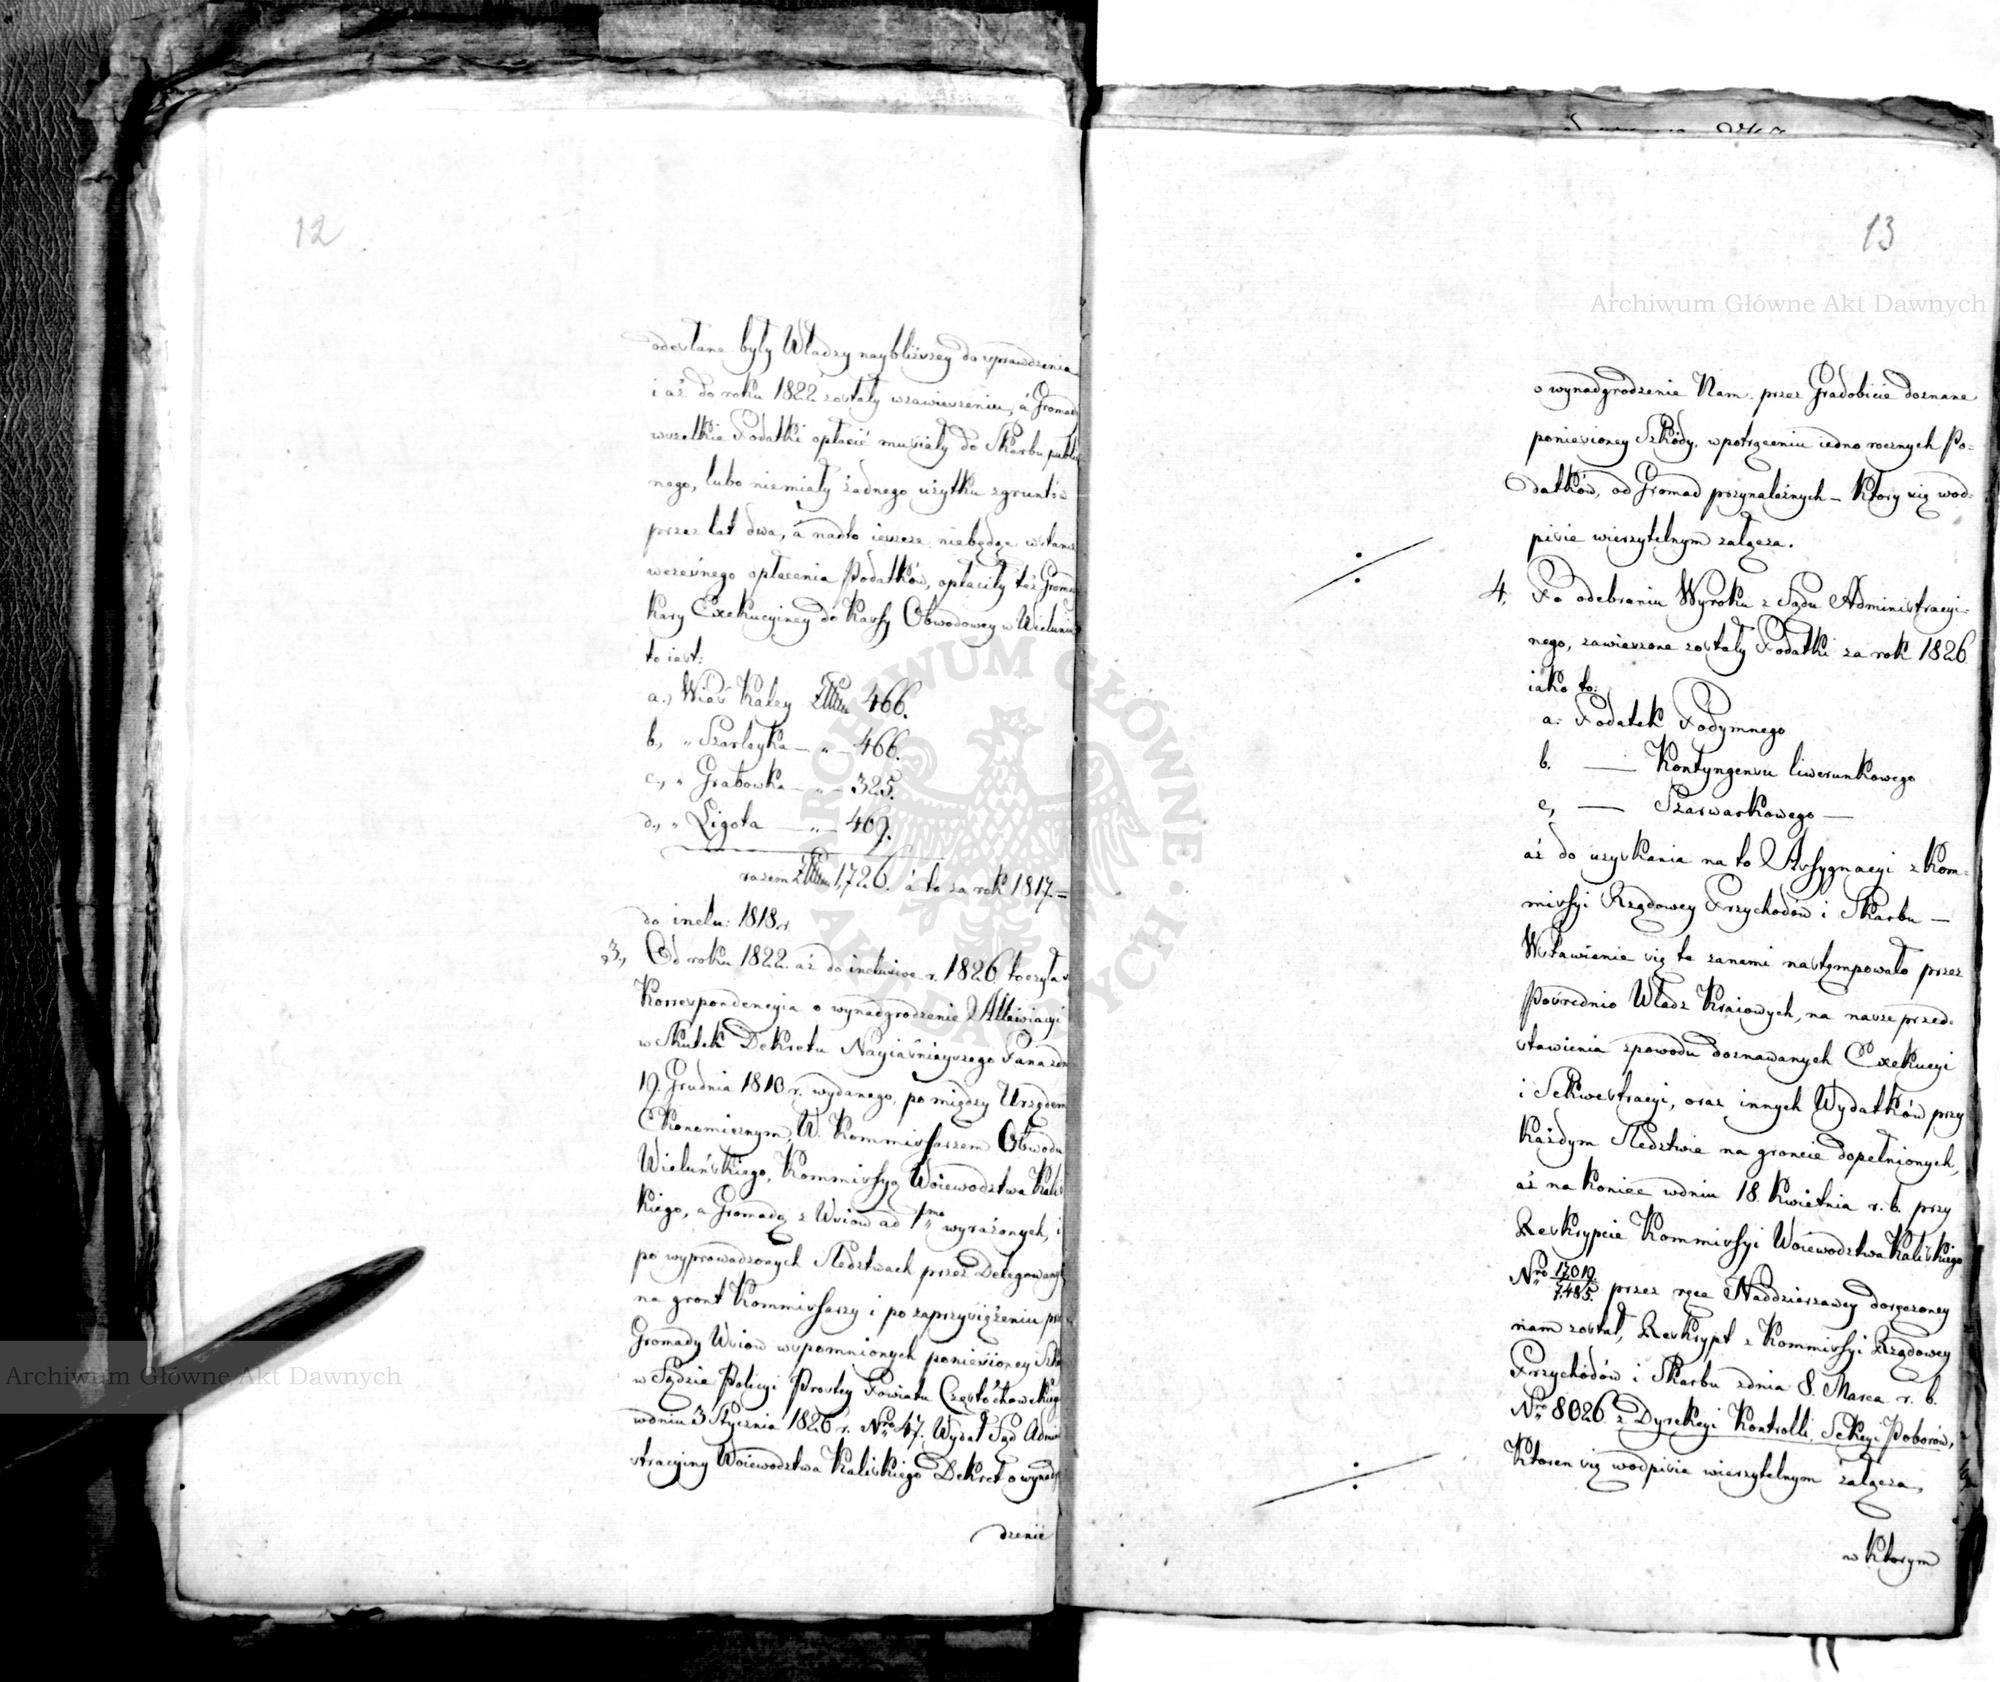 12
odesłane były Władzy naybliższey do sprawdzenia
i aż do roku 1822 zostały w zawieszeniu, á Gromady
wszelkie Podatki opłacić musiały do Skarbu publi
nego, lubo niemiały żadnego użytku z gruntów
przez lat dwa, á nadto ieszcze niebędąc wstanie
wczesnego opłacenia Podatków, opłaciły też Gromady
Kary Exekucyiney do Kassy Obwodowey w Wieluniu
to iest:
a., Wieś Kaley 466.
b., " Szarleyka — " — 466.
c., " Grabowka — " — 325.
d., " Ligota — " — 469.
razem 1,726. á to za rok 1817. =
do inclu: 1818 r.
3., Od roku 1822. aż do inclusive r. 1826 toczyła
Korrespondencyia o wynadgrodzenie Allewiacyi
w skutek Dekretu Nayiaśnieyszego Pana
19. Grudnia 1810 r. wydanego, pomiędzy Urzędem
Ekonomicznym, W. Kommissarzem Obwodu
Wieluńskiego, Kommissyą Woiewodztwa Kalis
kiego, a Gromadą z Wsiow ad 1mo wyrażonych, i
po wyprowadzonych Sledztwach przez Delegowanych
na gront Kommissarzy i po zaprzysiężeniu przez
Gromady Wsiow wspomnionych poniesioney
w Sądzie Policyi Prostey Powiatu Częstochowskiego
wdniu 3 Stycznia 1826 r. Nro 47. Wydał Sąd Admini
stracyiny Woiewodztwa Kaliskiego Dekret o wynadgro
dzenie
13
o wynadgrodzenie Nam przez Gradobicie doznane
poniesioney Szkody, w potrąceniu iedno rocznych Po=
datków, od Gromad przynależnych — Ktory się wod=
pisie wierzytelnym załącza.
4. Po odebraniu Wyroku z Sądu Administracyi=
nego, zawieszone zostały Podatki za rok 1826
iako to:
a. Podatek Podymnego
b. — Kontyngensu liwerunkowego
c, — Szarwarkowego —
aż do uzyskania na to Assygnacyi z Kom=
missyi Rządowey Przychodów i Skarbu —
Wstawienie się te zanami następowało przez
Pośrednio Władz Kraiowych, na nasze przed=
stawienia z powodu doznawanych Exekucyi
i Sekwestracyi, oraz innych Wydatków przy
Każdym Sledztwie na groncie dopełnionych,
aż na koniec wdniu 18. Kwietnia r. b. przy
Reskrypcie Kommissyi Woiewodztwa Kaliskiego
Nro 17019./7.485. przez ręce Naddzierzawcy doręczoney
nam został, Reskrypt z Kommissyi Rządowey
Przychodów i Skarbu z dnia 8. Marca r. b.
Nro 8026 z Dyrekcyi Kontrolli, Sekcyi Poborów,
Ktoren się wodpisie wierzytelnym załącza,
w Ktorym
Archiwum Główne Akt Dawnych
Archiwum Główne Akt Dawnych
ARCHIWUM GŁÓWNE AKT DAWNYCH